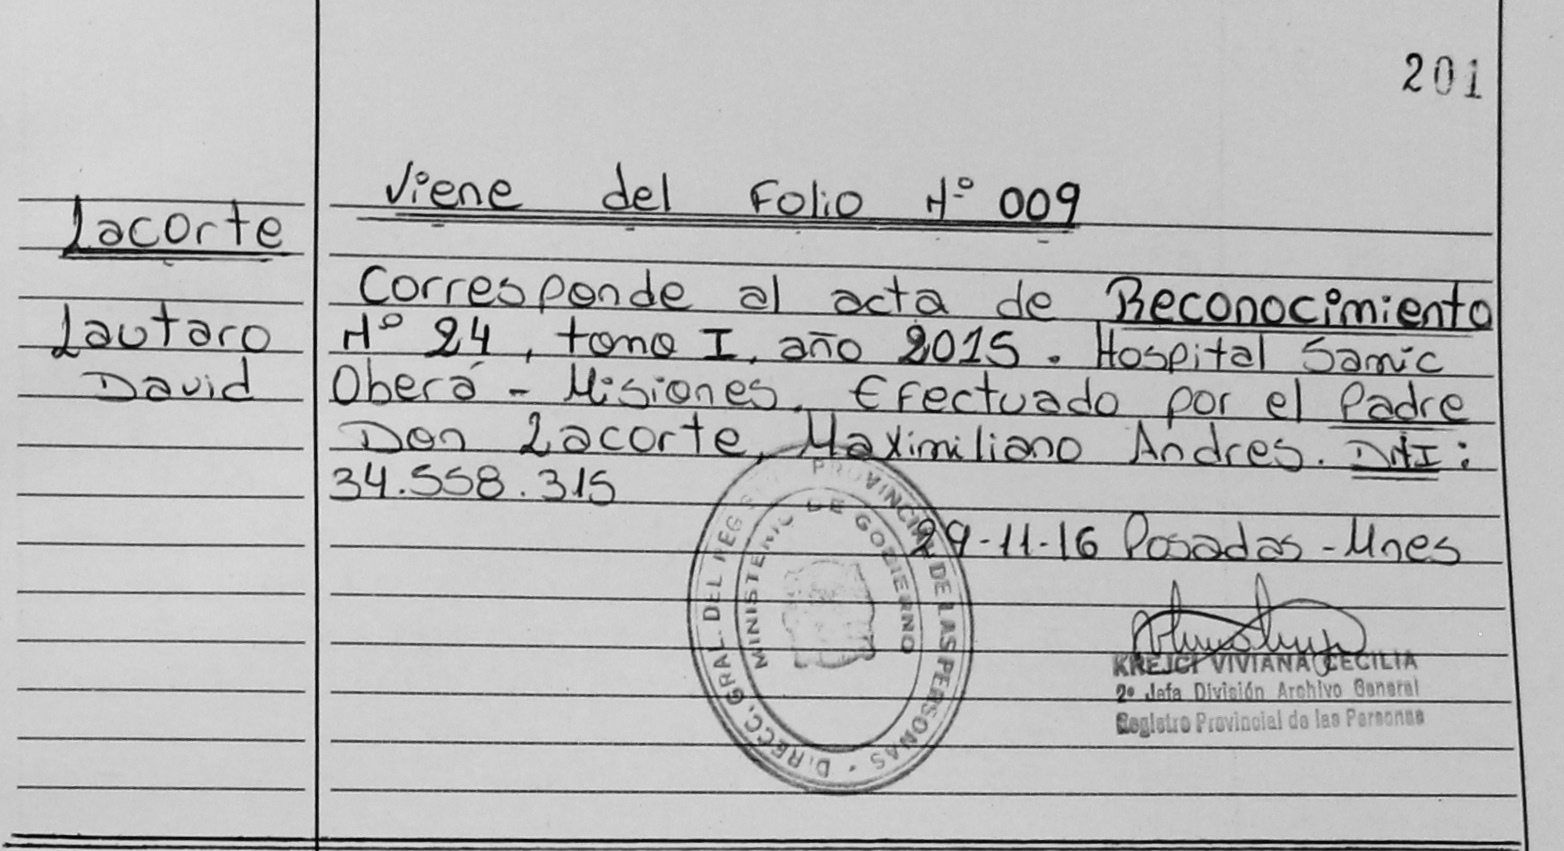 201
Viene del Folio N° 009
Lacorte
Lautaro
David
Corresponde al acta de Reconocimiento
N° 24, tomo I, año 2015. Hospital Samic
Oberá - Misiones. Efectuado por el Padre
Don Lacorte, Maximiliano Andres. DNI:
34.558.315
29-11-16 Posadas - Mnes
DIRECC. GRAL. DEL REG PROVINCIAL DE LAS PERSONAS
MINISTERIO DE GOBIERNO
KREJCI VIVIANA CECILIA
2° Jefa División Archivo General
Registro Provincial de las Personas